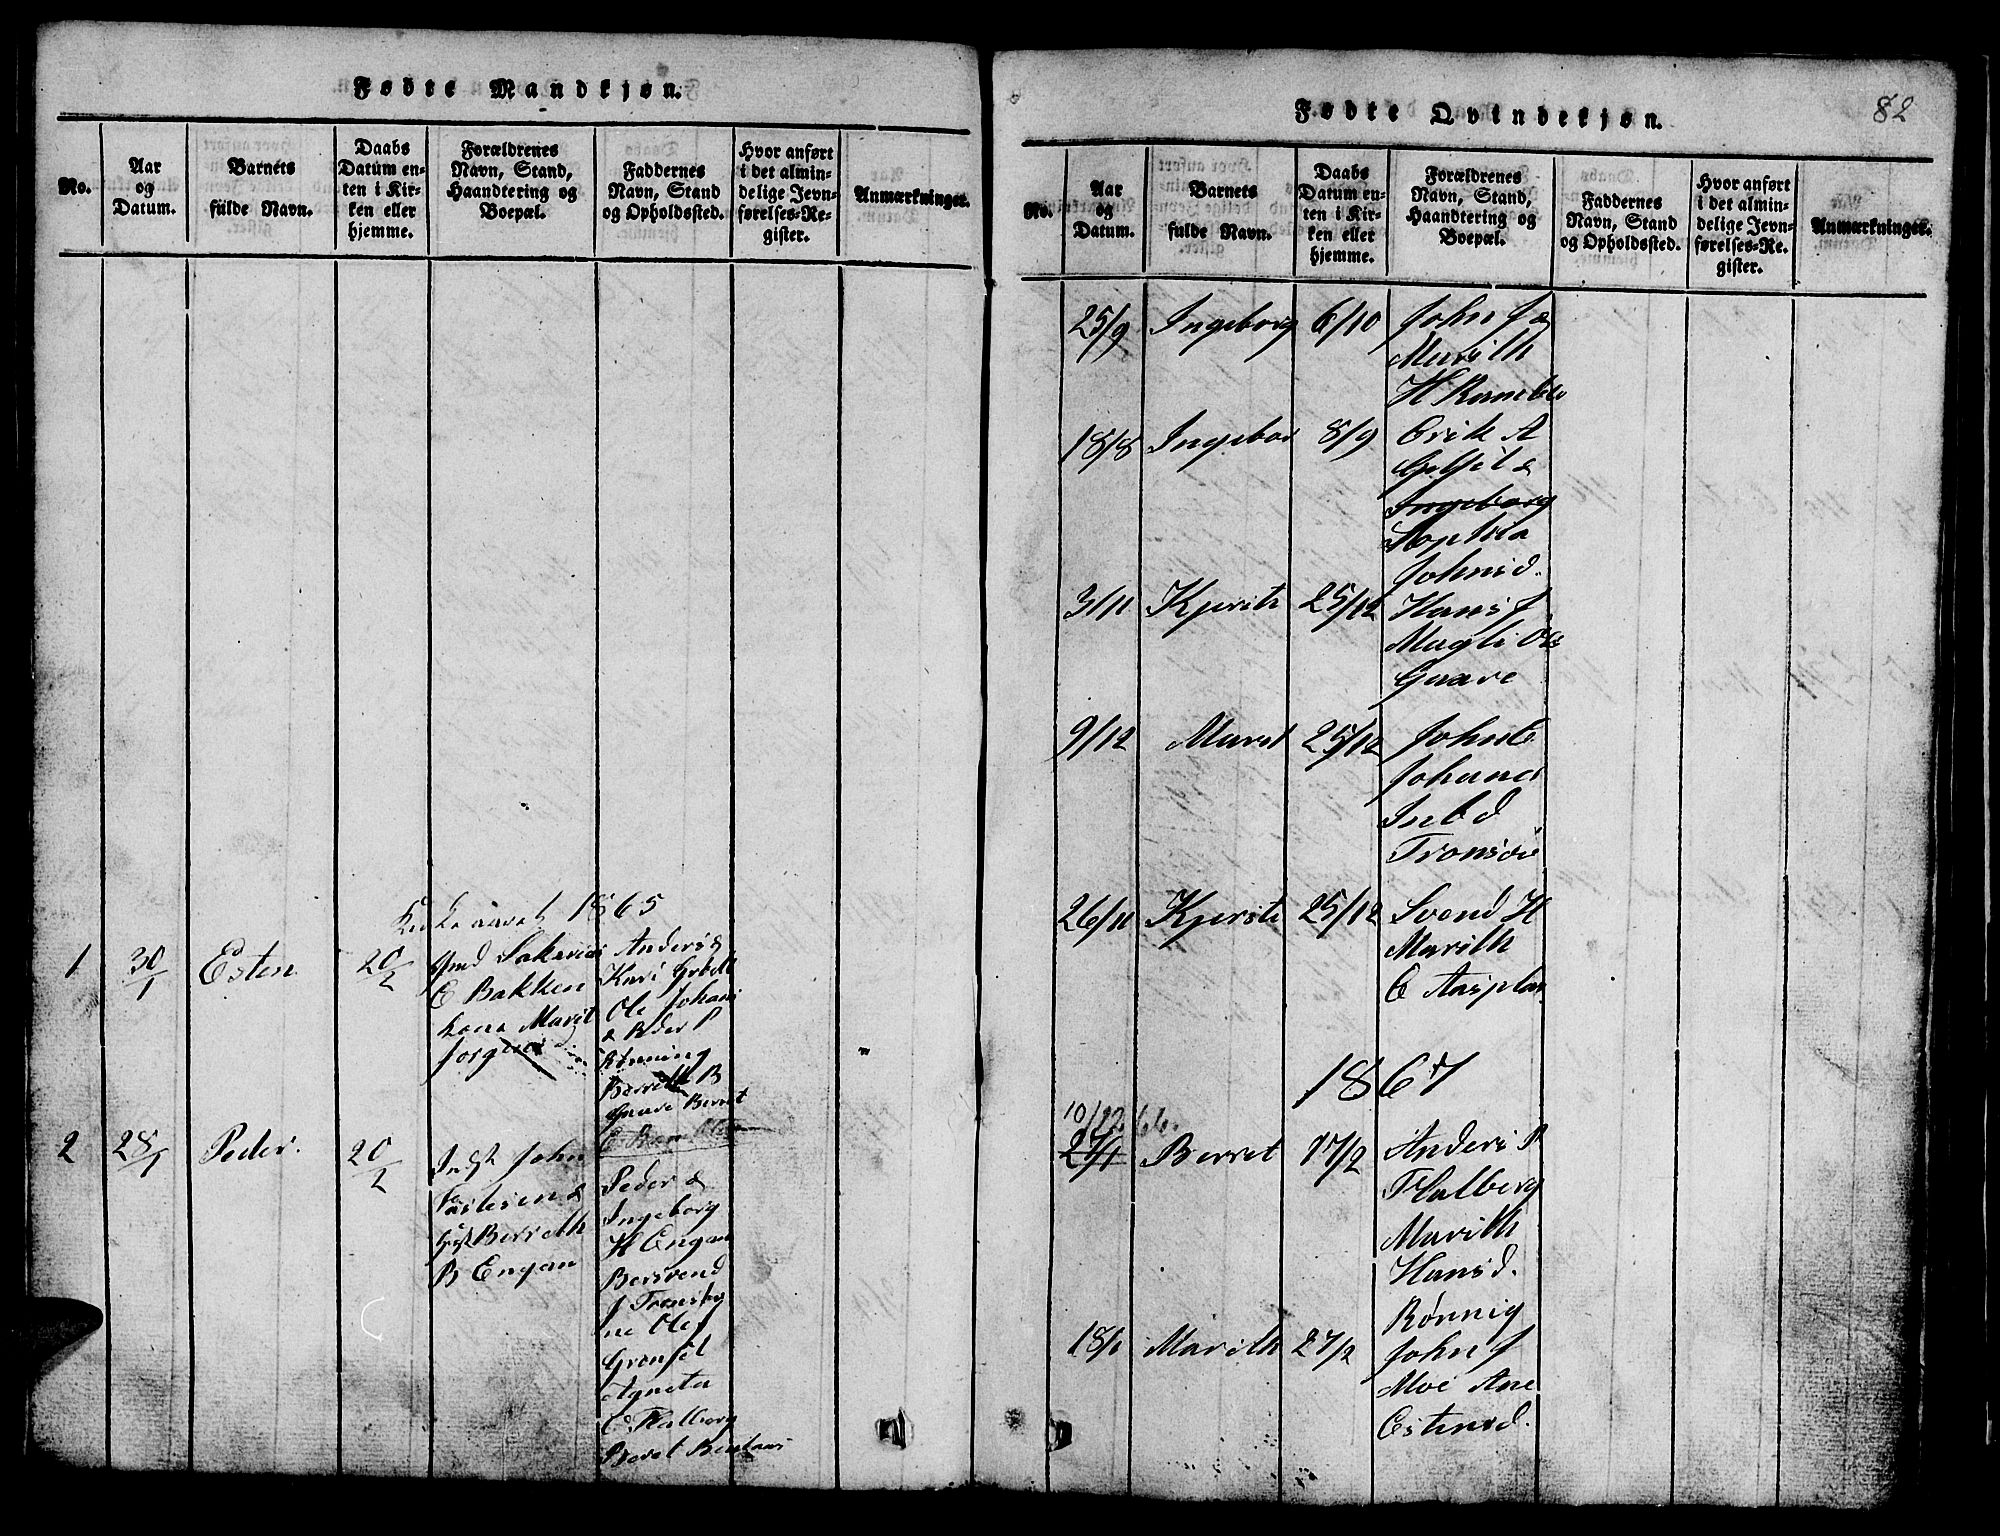 Fødte Mandkjøn.
No.
Aar
og
Datum.
Barnets
fulde Navn.
Daabs
Datum en-
ten i Kir-
ken eller
hjemme.
Forældrenes
Navn, Stand,
Haandtering og
Boepæl.
Faddernes
Navn, Stand
og Opholdssted.
Hvor anført
i det almin-
delige Jevn-
førelses-Re-
gister.
Anmærkninger.
1865
1
30/1
Esten
20/2
Sakarias
E Bakken
Kone Marit
Anders &
Kari
Ole Johans
& Peder P
Rönning
Berrith B
Gaare Berret
2
28/1
Peder.
20/2
John
Estesen &
Berreth
B Engan
Peder &
Ingeborg
H Engan
Bersvend
J
Ole J
Grønset
Agneta
E Flatberg
Beret
Fødte Qvindekjøn.
82
No.
Aar
og
Datum.
Barnets
fulde Navn.
Daabs
Datum en-
ten i Kir-
ken eller
hjemme.
Forældrenes
Navn, Stand,
Haandtering og
Boepæl.
Faddernes
Navn, Stand
og Opholdssted.
Hvor anført
i det almin-
delige Jevn-
førelses-Re-
gister.
Anmærkninger.
25/9
Ingeborg
6/10
John J &
Marith
H
18/8
Ingebor
8/9
Erik A
&
Ingeborg
Sophia
Johnsd.
3/11
Kjersti
25/12
Hans J
Magli Ols
Gaare
9/12
Marit
25/12
John E
Johana
Tronsøi
26/11
Kjersti
25/12
Svend H
Marith
E Aasplas
1867
10/12 66.
27/1
Berret
17/2
Anders P
Flatberg
Marith
Hansd.
Rönnig
18/1
Marith
27/2
John J
Moe Ane
Estensd.